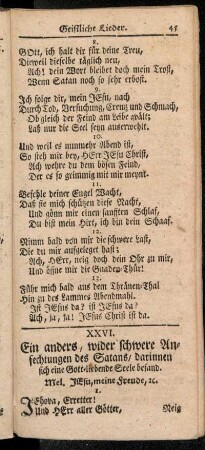 Geistliche Lieder. 45
8.
GOtt, ich halt dir für deine Treu,
Dieweil dieselbe täglich neu,
Ach! dein Wort bleibet doch mein Trost,
Wenn Satan noch so sehr erbost.
9.
Ich folge dir, mein JEsu, nach
Durch Tod, Versuchung, Creutz und Schmach,
Ob gleich der Feind am Leibe quält;
Laß nur die Seel seyn auserwehlt.
10.
Und weil es nunmehr Abend ist,
So steh mir bey, HErr JEsu Christ,
Ach wehre du dem bösen Feind,
Der es so grimmig mit mir meynt.
11.
Befehle deiner Engel Wacht,
Daß sie mich schützen diese Nacht,
Und gönn mir einen sanfften Schlaf,
Du bist mein Hirt, ich bin dein Schaaf.
12.
Nimm bald von mir die schwere Last,
Die du mir aufgeleget hast;
Ach, HErr, neig doch dein Ohr zu mir,
Und öffne mir die Gnaden-Thür!
13.
Führ mich bald aus dem Thränen-Thal
Hin zu des Lammes Abendmahl.
Ist JEsus da? ist JEsus da?
Ach, ja, ja! JEsus Christ ist da.
XXVI.
Ein anders, wider schwere An-
fechtungen des Satans, darinnen
sich eine Gott-liebende Seele befand.
Mel. JEsu, meine Freude, &c.
1.
JEhova, Erretter!
Und HErr aller Götter,
Neig